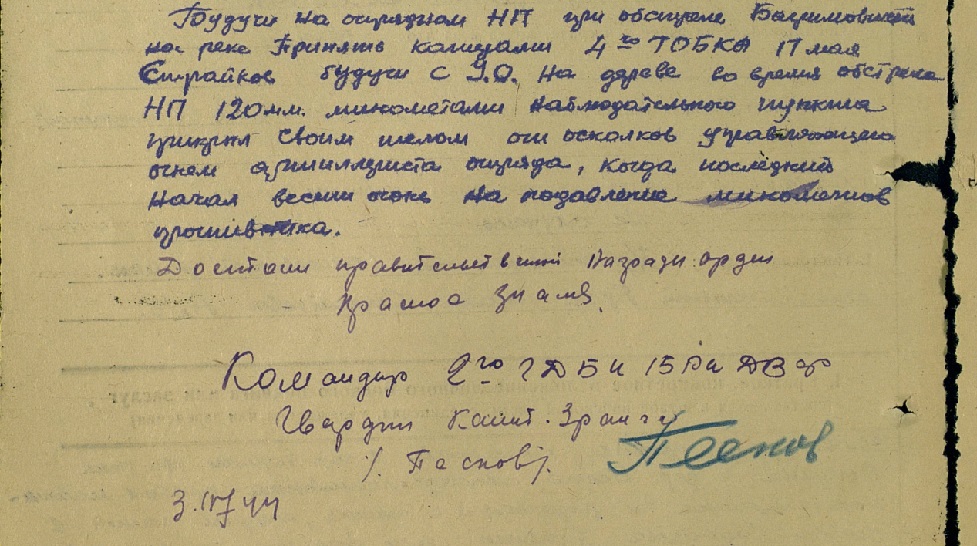 Будучи на очередном НП при обстреле
на реке Принять катерами 4го ТОБКА 17 мая
Страйков будучи с У.О. на дереве во время обстрела
НП 120мм. минометами наблюдательного пункта
прикрыл своим телом от осколков управляющего
огнем артиллериста отряда, когда последний
начал вести огонь на подавление минометов
противника.
Достоин правительственной награды орден
Красное Знамя.
Командир 2го ДБК
Гвардии Капит. 3 ранга
/Песков/. Песков